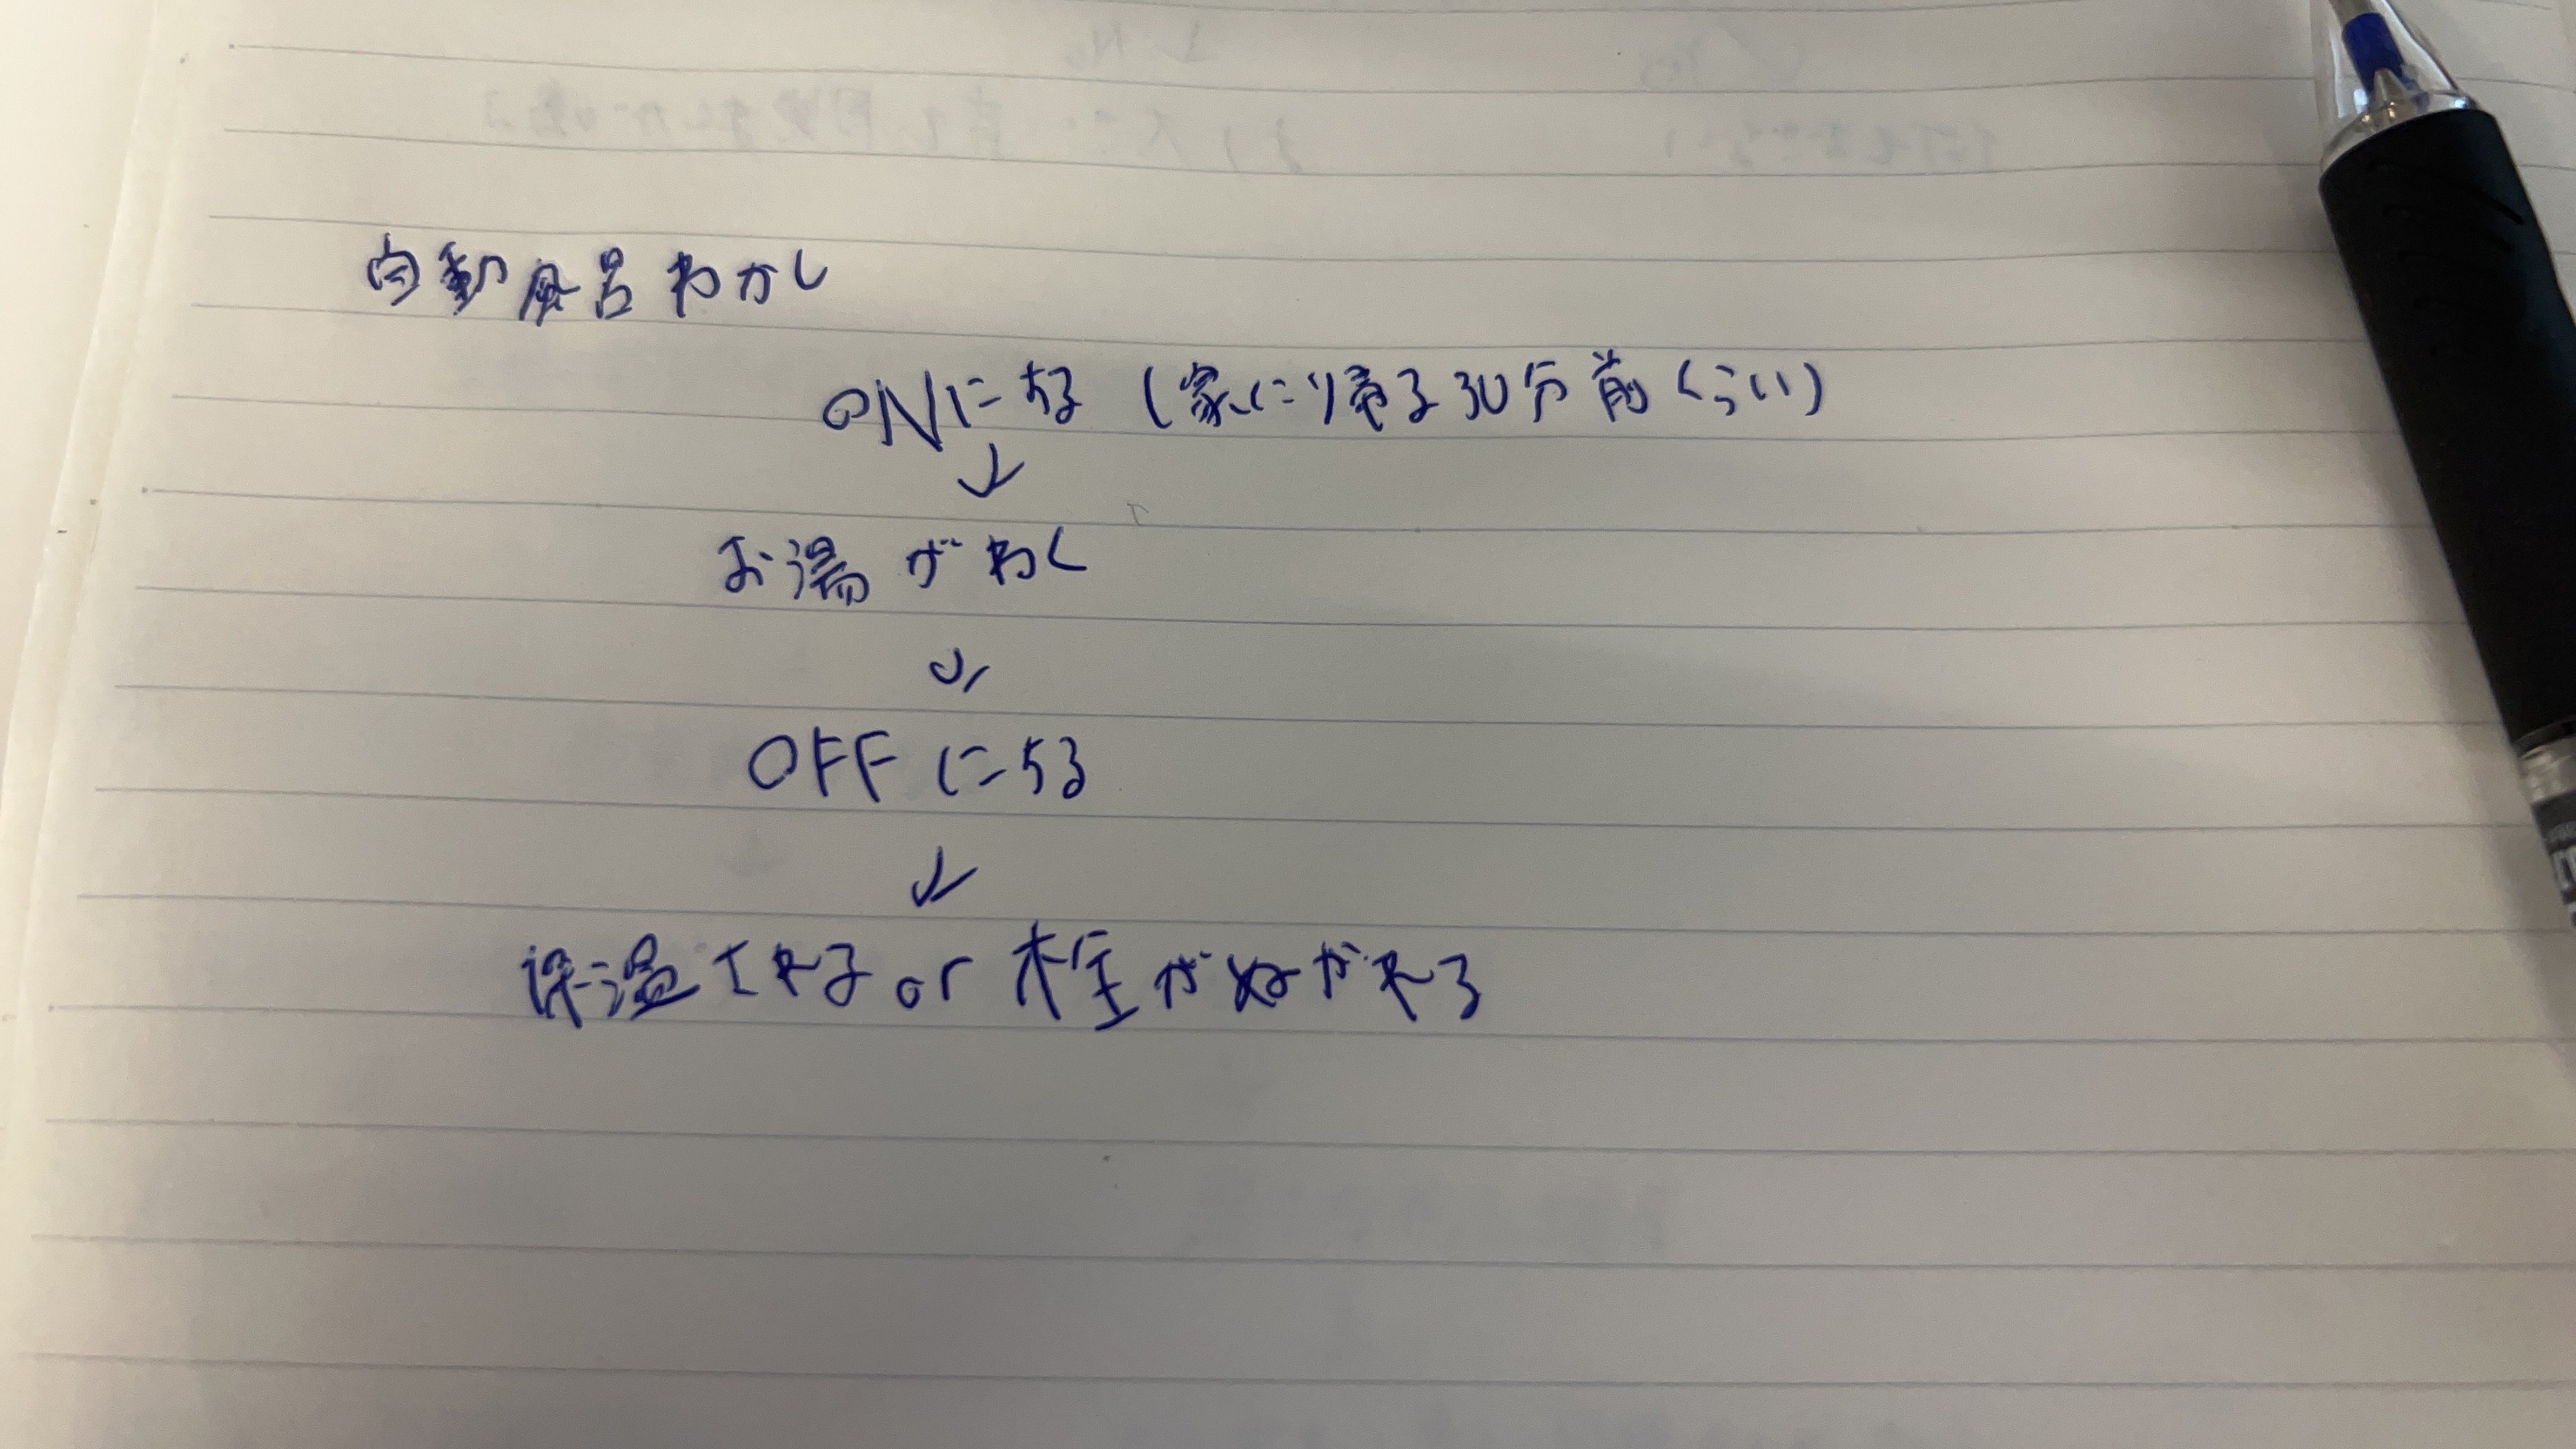 自動風呂わかし
ONになる(家に帰る30分前くらい)
↓
お湯がわく
↓
OFFになる
↓
保温される or 栓がぬかれる